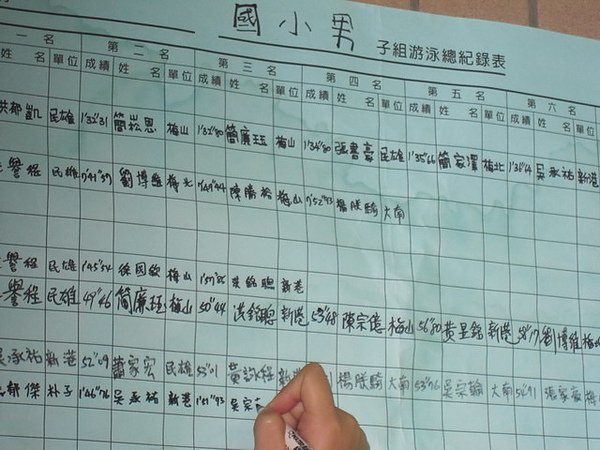 國小男子組游泳總紀錄表
一名 第二名 第三名 第四名 第五名 第六名
姓名 單位 成績 姓名 單位 成績 姓名 單位 成績 姓名 單位 成績 姓名 單位 成績 姓名 單位
洪郁凱 民雄 1'32"31 簡崧恩 梅山 1'32"80 簡廉珏 梅山 1'34"80 張書豪 民雄 1'35"66 簡家澤 梅北 1'36"14 吳承祐 新港
譽程 民雄 劉博維 梅北 陳勝裕 梅山 楊朕騎 大南
譽程 民雄 1'45"54 徐國欽 梅山 新港
譽程 民雄 49"46 簡廉珏 梅山 50"44 洪銘聰 新港 53"48 陳宗億 梅山 56"80 黃呈錦 新港 58"17 劉博維 梅
吳承祐 新港 52"09 蕭家宏 民雄 53"01 黃詠程 新港 楊朕騎 大南 53"76 吳宗翰 大南 54"91 張家豪
郁傑 朴子 1'46"76 吳承祐 新港 1'51"93 吳宗